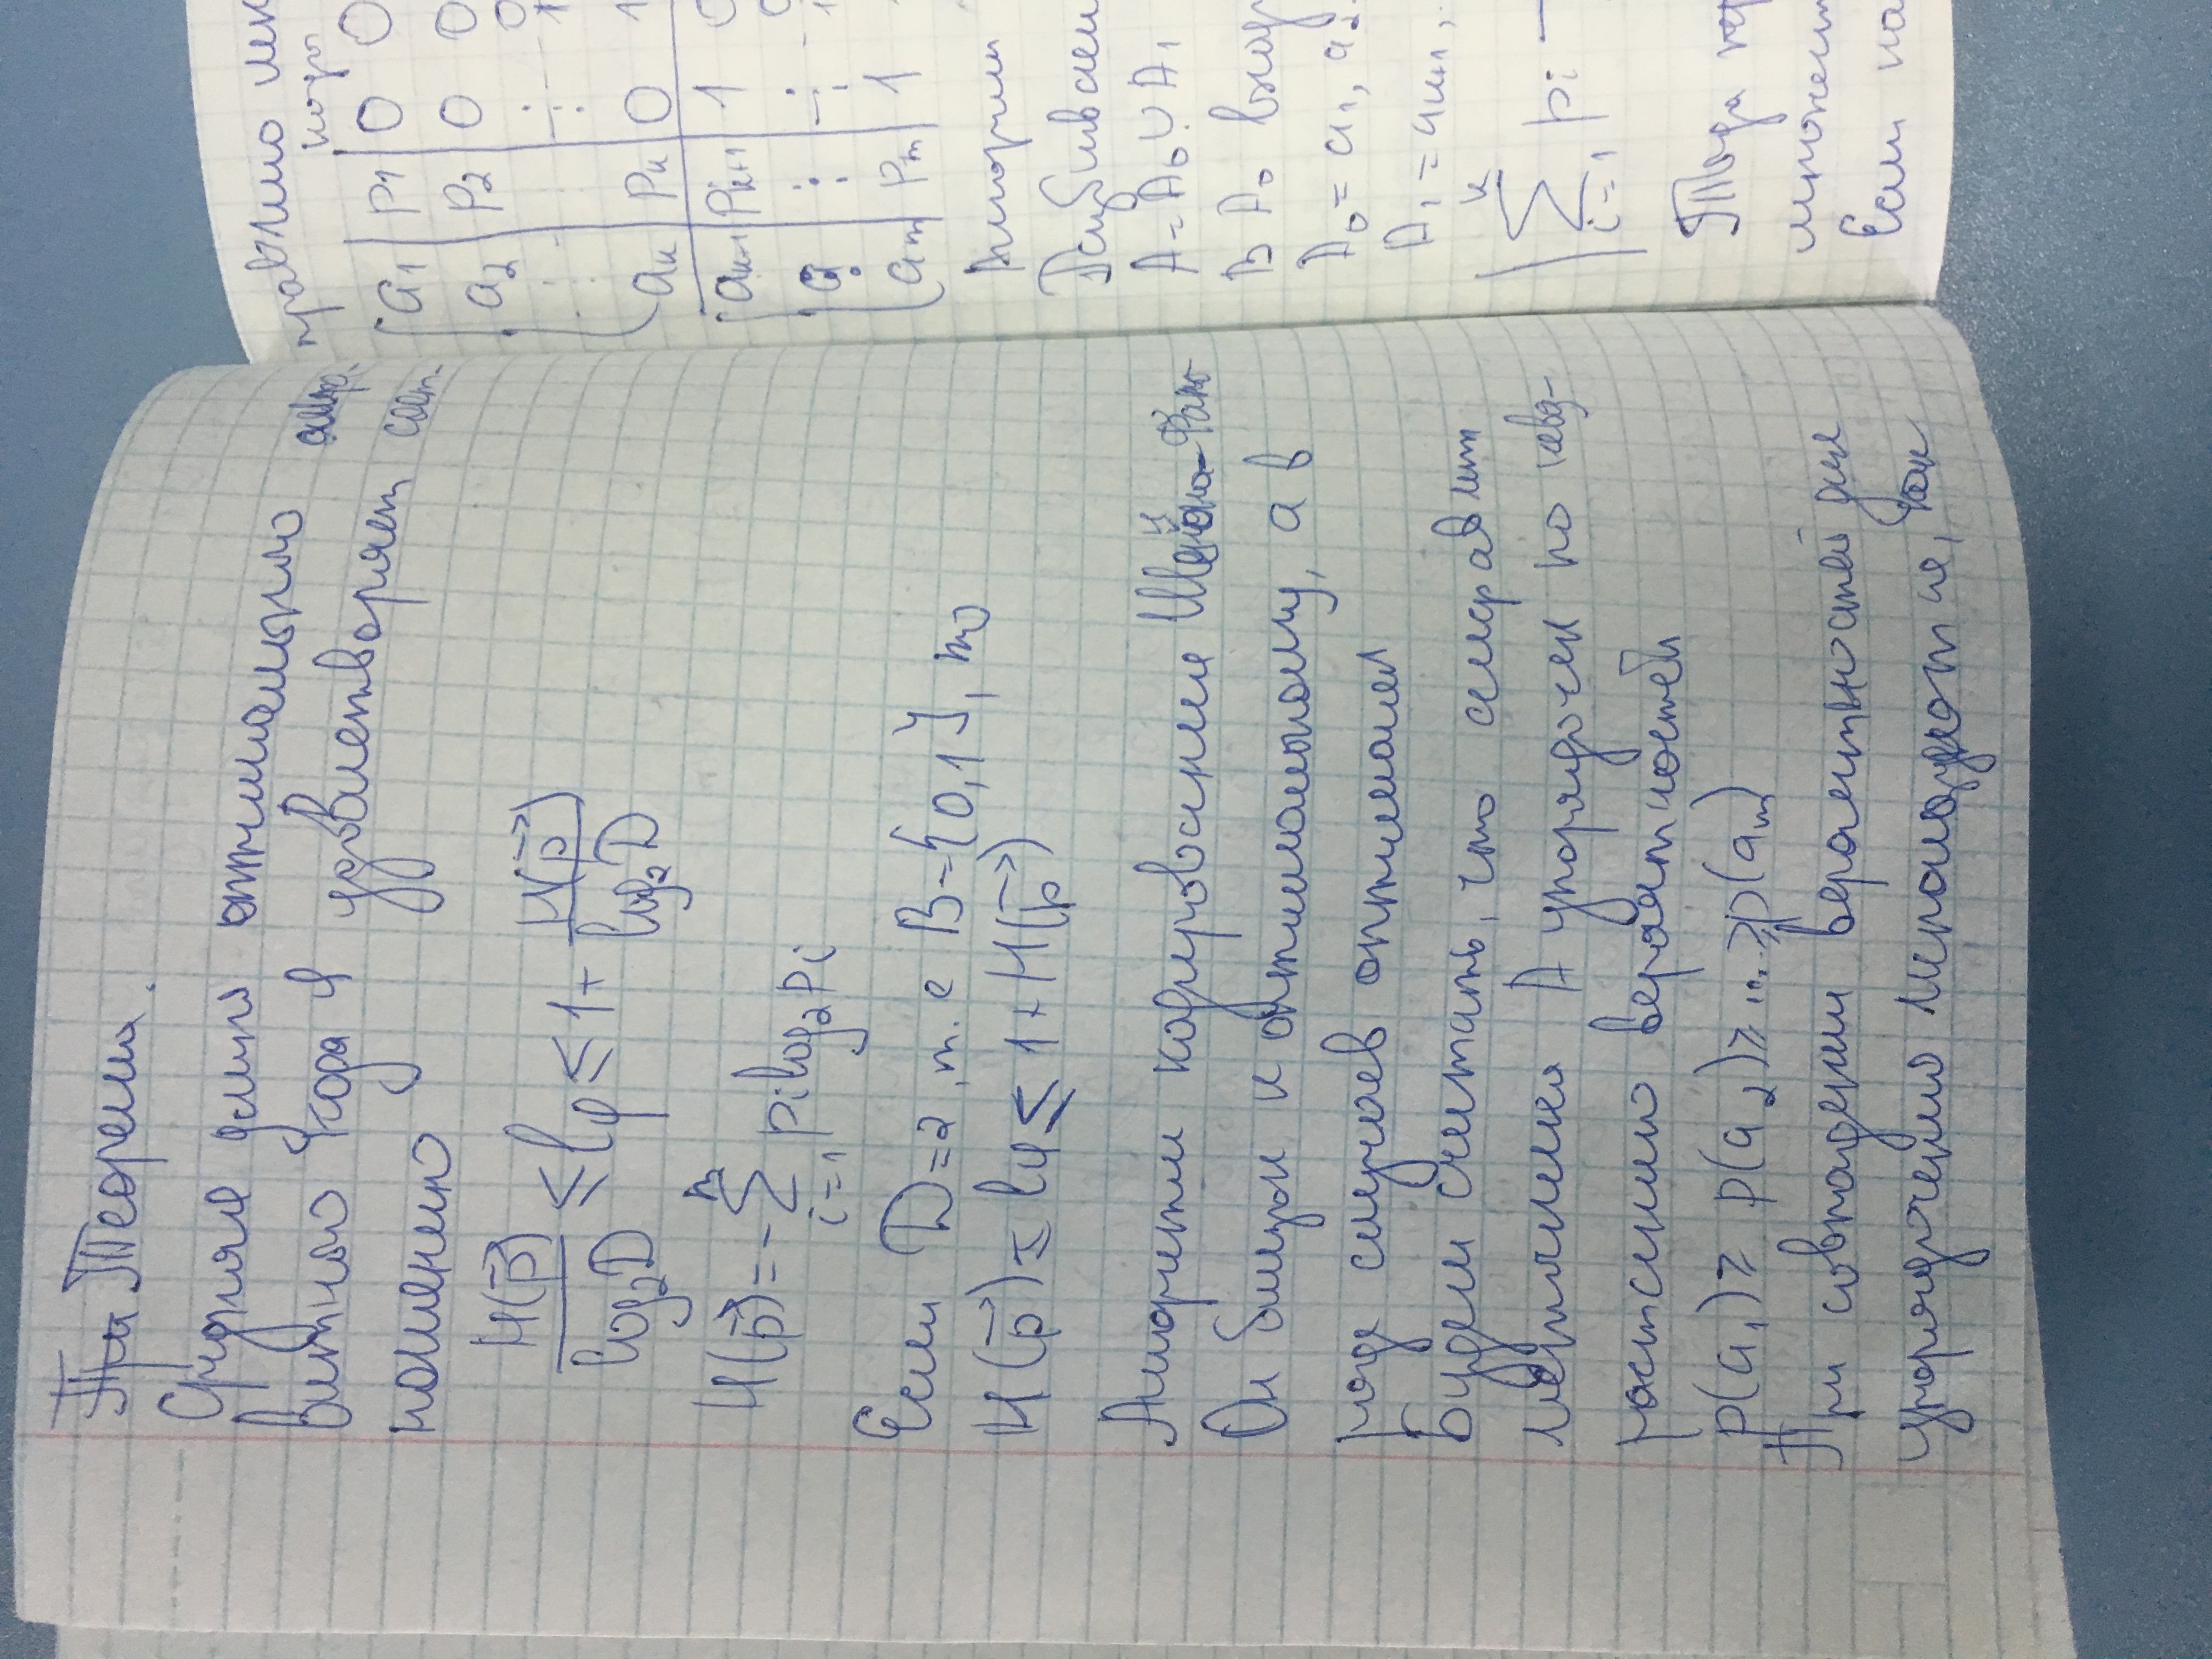 При Теорема.
Средняя длина оптимального алфа-
витного кода φ удовлетворяет соот-
ношению
H(p⃗)/log₂D ≤ lφ ≤ 1 + H(p⃗)/log₂D
H(p⃗) = -∑ᵢ₌₁ᵐ pᵢ log₂ pᵢ
Если D=2, т.е B={0,1}, то
H(p⃗) ≤ lφ ≤ 1+H(p⃗)
Алгоритм кодирования Шеннона-Фано
Он близок к оптимальному, а в
ряде случаев оптимален
Будем считать, что алфавит
источника A упорядочен по невоз-
растанию вероятностей
p(a₁) ≥ p(a₂) ≥ ... ≥ p(aₘ)
При совпадении вероятностей для
упорядочения используются, как
правило лек
коды
a₁ p₁ 0 0
a₂ p₂ 0 0
⋮ ⋮ 0
1
aₖ pₖ 0 1
aₖ₊₁ pₖ₊₁ 1 0
a ⋮ ⋮ 0
1
aₘ pₘ 1
Алгоритм
Разбиваем
A = A₀ ∪ A₁
В A₀ вход
A₀ = a₁, a₂
A₁ = aₖ₊₁,
|∑ᵢ₌₁ᵏ pᵢ −
Тогда
множест
Если на